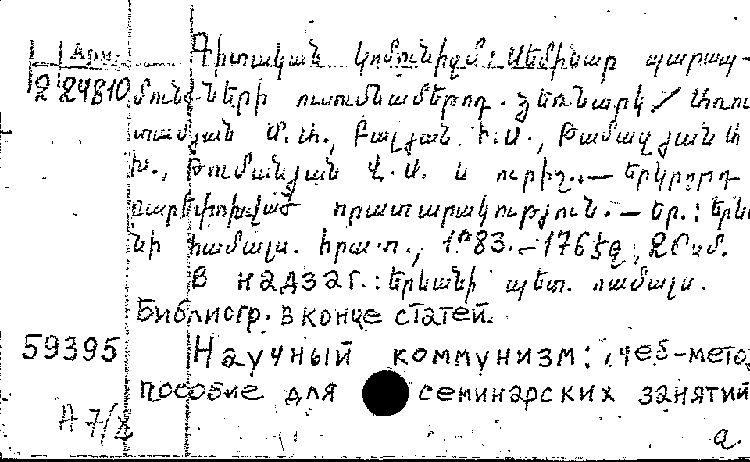 Арм. Գիտական կոմունիզմ: Սեմինար պարապ-
2 24810 մունքների ուսումնամեթոդ. ձեռնարկ / Առու
տամյան Մ.Ա., Բալյան Ի.Ս., Թամազյան Ա
Խ., Թումանյան Վ.Ս. և ուրիշ.— Երկրորդ
բարեփոխված հրատարակություն.— Եր.: Երև
նի համալս. հրատ., 1983.—176 էջ, 20սմ.
В надзаг.: Երևանի պետ. համալս.
Библиогр. в конце статей.
59395 Научный коммунизм: учеб-метод
пособие для семинарских занятий
А 7/2
а.